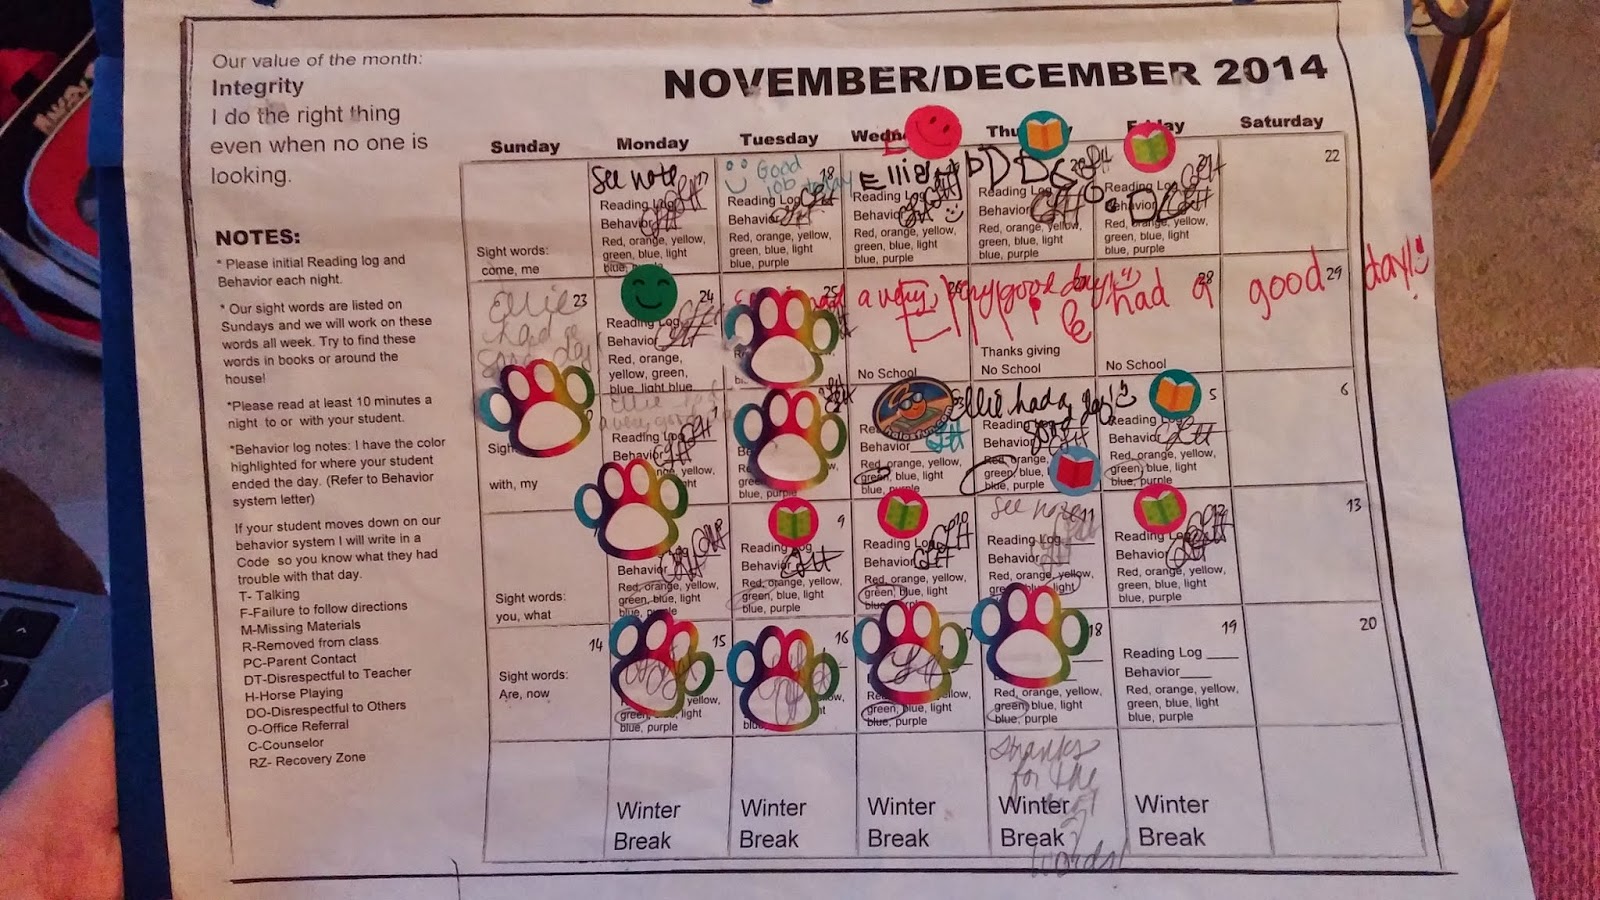 Our value of the month:
Integrity
I do the right thing
even when no one is
looking.
NOTES:
* Please initial Reading log and
Behavior each night.
* Our sight words are listed on
Sundays and we will work on these
words all week. Try to find these
words in books or around the
house!
*Please read at least 10 minutes a
night to or with your student.
*Behavior log notes: I have the color
highlighted for where your student
ended the day. (Refer to Behavior
system letter)
If your student moves down on our
behavior system I will write in a
Code so you know what they had
trouble with that day.
T- Talking
F-Failure to follow directions
M-Missing Materials
R-Removed from class
PC-Parent Contact
DT-Disrespectful to Teacher
H-Horse Playing
DO-Disrespectful to Others
O-Office Referral
C-Counselor
RZ- Recovery Zone
NOVEMBER/DECEMBER 2014
Sunday Monday Tuesday Wedn Thu Friday Saturday
Sight words:
come, me
See note 17
Reading Log
Behavior
Red, orange, yellow,
green, blue, light
blue, purple
Good 18
job today
Reading Log
Behavior
Red, orange, yellow,
green, blue, light
blue, purple
Reading Log
Behavior
Red, orange, yellow,
green, blue, light
blue, purple
20
Reading Log
Behavior
Red, orange, yellow,
green, blue, light
blue, purple
21
Reading Log
Behavior
Red, orange, yellow,
green, blue, light
blue, purple
22
Ellie 23
had a
good day!
24
Reading Log
Behavior
Red, orange,
yellow, green,
blue, light blue,
25
had a very, very good day!
26
No School
Thanks giving
No School
had a good day!
28
No School
29
Sigh
with, my
Ellie
a very good
1
Reading Log
Behavior
yellow,
light
2
blue, purple
3
Behavior
Red, orange, yellow,
green, blue, light
blue, purple
Ellie had a
good day!
Reading Log
Behavior
Red, orange, yellow,
green, blue, light
blue, purple
5
Reading Log
Behavior
Red, orange, yellow,
green, blue, light
blue, purple
6
Sight words:
you, what
8
Log
Behavior
Red, orange, yellow,
green, blue, light
blue, purple
9
Reading Log
Behavior
Red, orange, yellow,
green, blue, light
blue, purple
10
Reading Log
Behavior
Red, orange, yellow,
green, blue, light
blue, purple
See note 11
Reading Log
Behavior
Red, orange, yellow,
green, blue, light
12
Reading Log
Behavior
Red, orange, yellow,
green, blue, light
blue, purple
13
14
Sight words:
Are, now
15
yellow,
green, blue, light
blue, purple
16
yellow,
light
blue, purple
17
yellow,
green, blue, light
blue, purple
18
Red, orange, yellow,
green, blue, light
blue, purple
19
Reading Log ____
Behavior____
Red, orange, yellow,
green, blue, light
blue, purple
20
Winter
Break
Winter
Break
Winter
Break
thanks
for the
Winter
Break
words!
Winter
Break